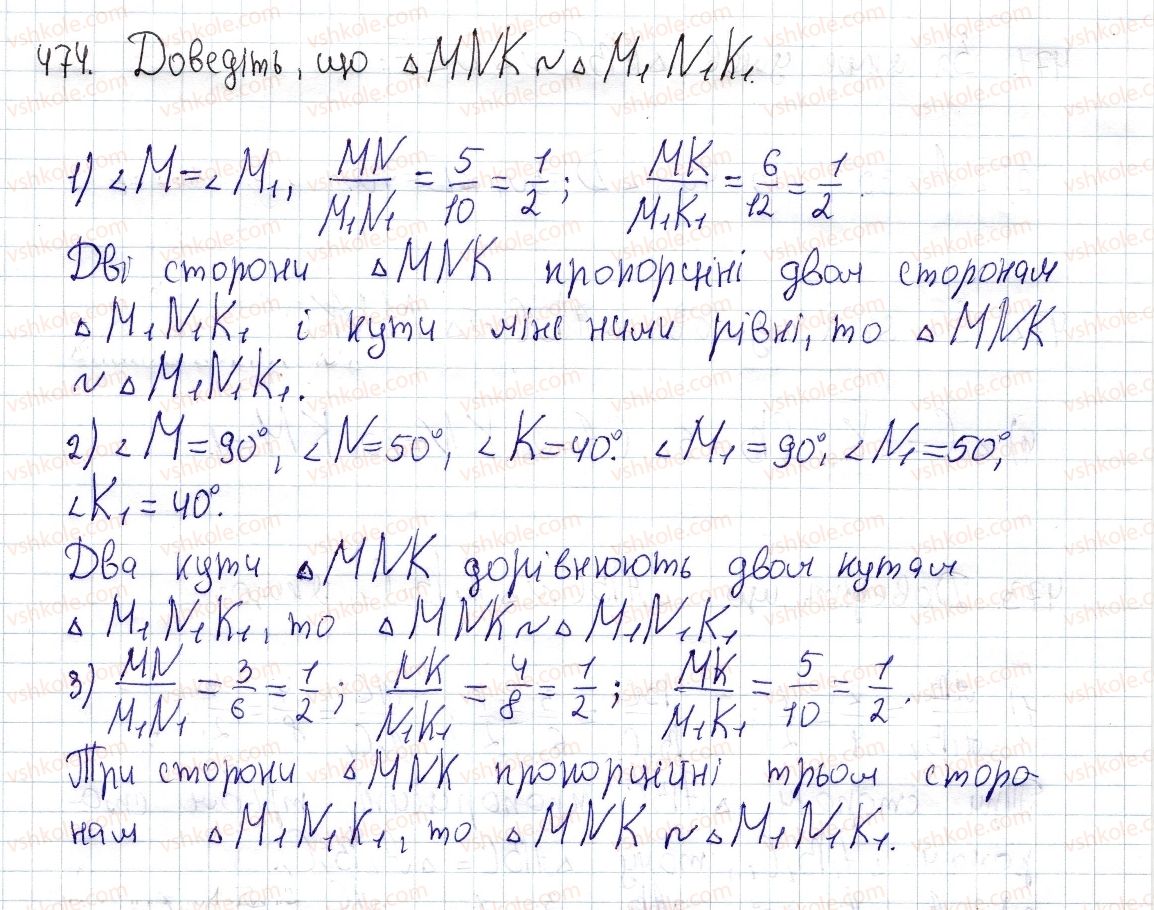 474. Доведіть, що △MNK ~ △M₁N₁K₁.
1) ∠M = ∠M₁, MN/M₁N₁ = 5/10 = 1/2; MK/M₁K₁ = 6/12 = 1/2.
Дві сторони △MNK пропорцінні двом сторонам
△M₁N₁K₁ і кути між ними рівні, то △MNK
~ △M₁N₁K₁.
2) ∠M = 90°, ∠N = 50°, ∠K = 40°. ∠M₁ = 90°, ∠N₁ = 50°,
∠K₁ = 40°.
Два кути △MNK дорівнюють двом кутам
△M₁N₁K₁, то △MNK ~ △M₁N₁K₁
3) MN/M₁N₁ = 3/6 = 1/2; NK/N₁K₁ = 4/8 = 1/2; MK/M₁K₁ = 5/10 = 1/2.
Три сторони △MNK пропорційні трьом сторо-
нам △M₁N₁K₁, то △MNK ~ △M₁N₁K₁.
vshkole.com